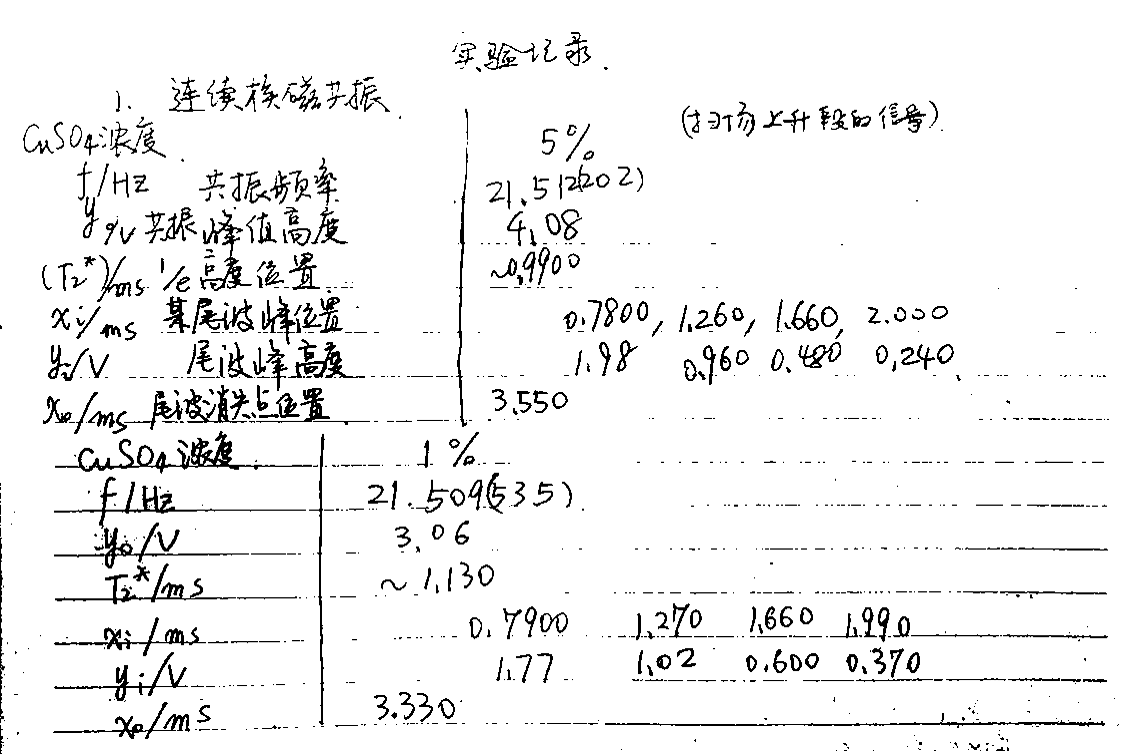 实验记录.
1. 连续核磁共振
(扫场上升段的信号)
CuSO4浓度 5%
f/Hz 共振频率 21.512(202)
y0/V 共振峰值高度 4.08
(T2*)/ms 1/e高度位置 ~0.9900
xi/ms 某尾波峰位置 0.7800, 1.260, 1.660, 2.000
yi/V 尾波峰高度 1.98 0.960 0.480 0.240
x0/ms 尾波消失点位置 3.550
CuSO4浓度. 1%
f/Hz 21.509(535)
y0/V 3.06
T2*/ms ~1.130
xi/ms 0.7900 1.270 1.660 1.990
yi/V 1.77 1.02 0.600 0.370
x0/ms 3.330